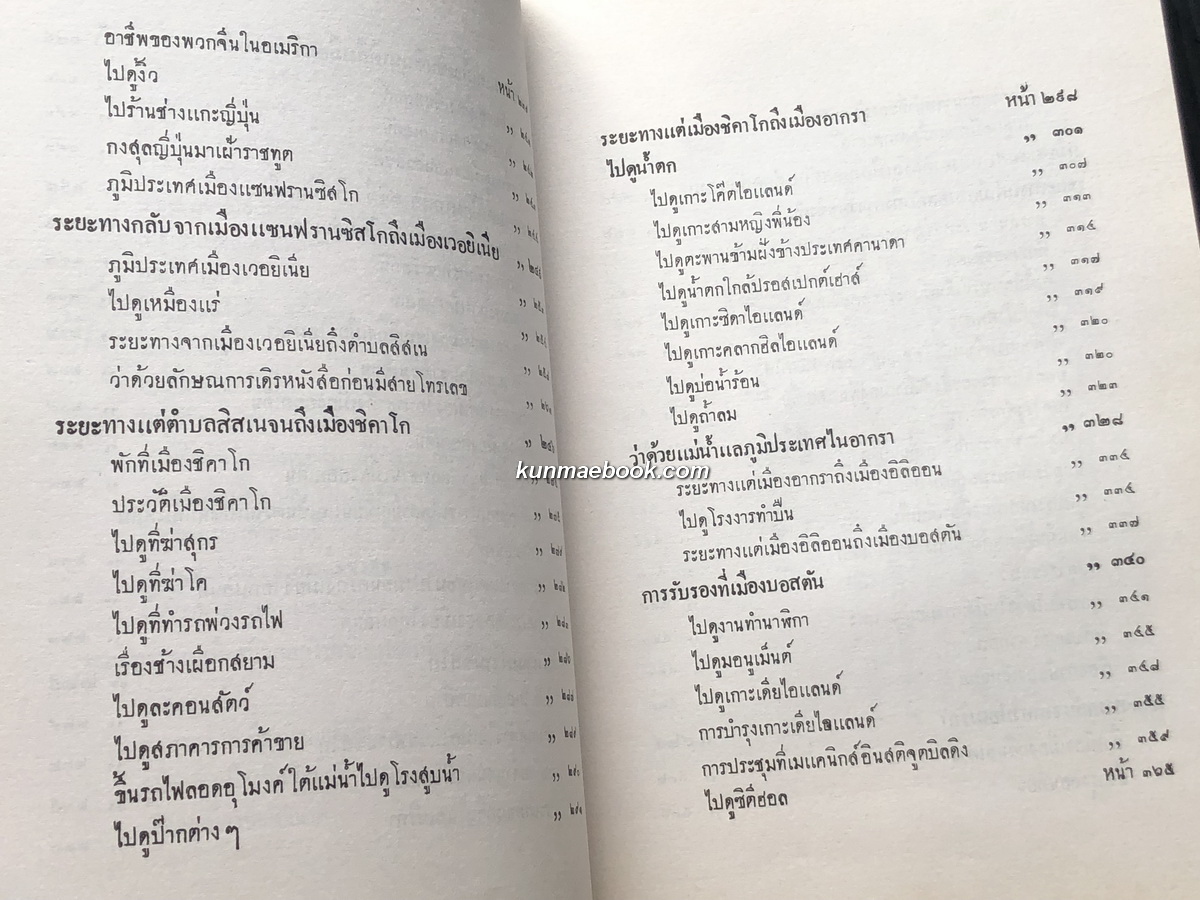 อาชีพของพวกจีนในอเมริกา
ไปดูงิ้ว
หน้า
ไปร้านช่างแกะญี่ปุ่น
กงสุลญี่ปุ่นมาเฝ้าราชทูต
ภูมิประเทศเมืองแซนฟรานซิสโก
ระยะทางกลับจากเมืองแซนฟรานซิสโกถึงเมืองเวอยิเนีย
ภูมิประเทศเมืองเวอยิเนีย
ไปดูเหมืองแร่
ระยะทางจากเมืองเวอยิเนียถึงตำบลสิสเน
ว่าด้วยลักษณการเดิรหนังสือก่อนมีสายโทรเลข
ระยะทางแต่ตำบลสิสเนจนถึงเมืองชิคาโก
พักที่เมืองชิคาโก
ประวัติเมืองชิคาโก
ไปดูที่ฆ่าสุกร
ไปดูที่ฆ่าโค
ไปดูที่ทำรถพ่วงรถไฟ
เรื่องช้างเผือกสยาม
ไปดูละคอนสัตว์
ไปดูสภาคารการค้าขาย
ขึ้นรถไฟลอดอุโมงค์ใต้แม่น้ำไปดูโรงสูบน้ำ
ไปดูป๊ากต่าง ๆ
ระยะทางแต่เมืองชิคาโกถึงเมืองอากรา หน้า ๒๙๘
ไปดูน้ำตก ,, ๓๐๑
ไปดูเกาะโค๊ตไอแลนด์ ,, ๓๐๗
ไปดูเกาะสามหญิงพี่น้อง ,, ๓๑๓
ไปดูตะพานข้ามฝั่งข้างประเทศคานาดา ,, ๓๑๔
ไปดูน้ำตกใกล้ปรอสเปกต์เฮ่าส์ ,, ๓๑๗
ไปดูเกาะซิดาไอแลนด์ ,, ๓๑๙
ไปดูเกาะคลากฮิลไอแลนด์ ,, ๓๒๐
ไปดูบ่อน้ำร้อน ,, ๓๒๐
ไปดูถ้ำลม ,, ๓๒๓
ว่าด้วยแม่น้ำแลภูมิประเทศในอากรา ,, ๓๒๘
kunmaebook.com
ระยะทางแต่เมืองอากราถึงเมืองอิลิออน ,, ๓๓๔
ไปดูโรงงารทำปืน ,, ๓๓๔
ระยะทางแต่เมืองอิลิออนถึงเมืองบอสตัน ,, ๓๓๗
การรับรองที่เมืองบอสตัน ,, ๓๔๐
ไปดูงานทำนาฬิกา ,, ๓๔๑
ไปดูมอนูเม็นต์ ,, ๓๔๕
ไปดูเกาะเดียไอแลนด์ ,, ๓๔๘
การบำรุงเกาะเดียไอแลนด์ ,, ๓๕๕
การประชุมที่เมแคนิกส์อินสติจูตบิลดิง ,, ๓๕๙
ไปดูซิตีฮอล หน้า ๓๖๕